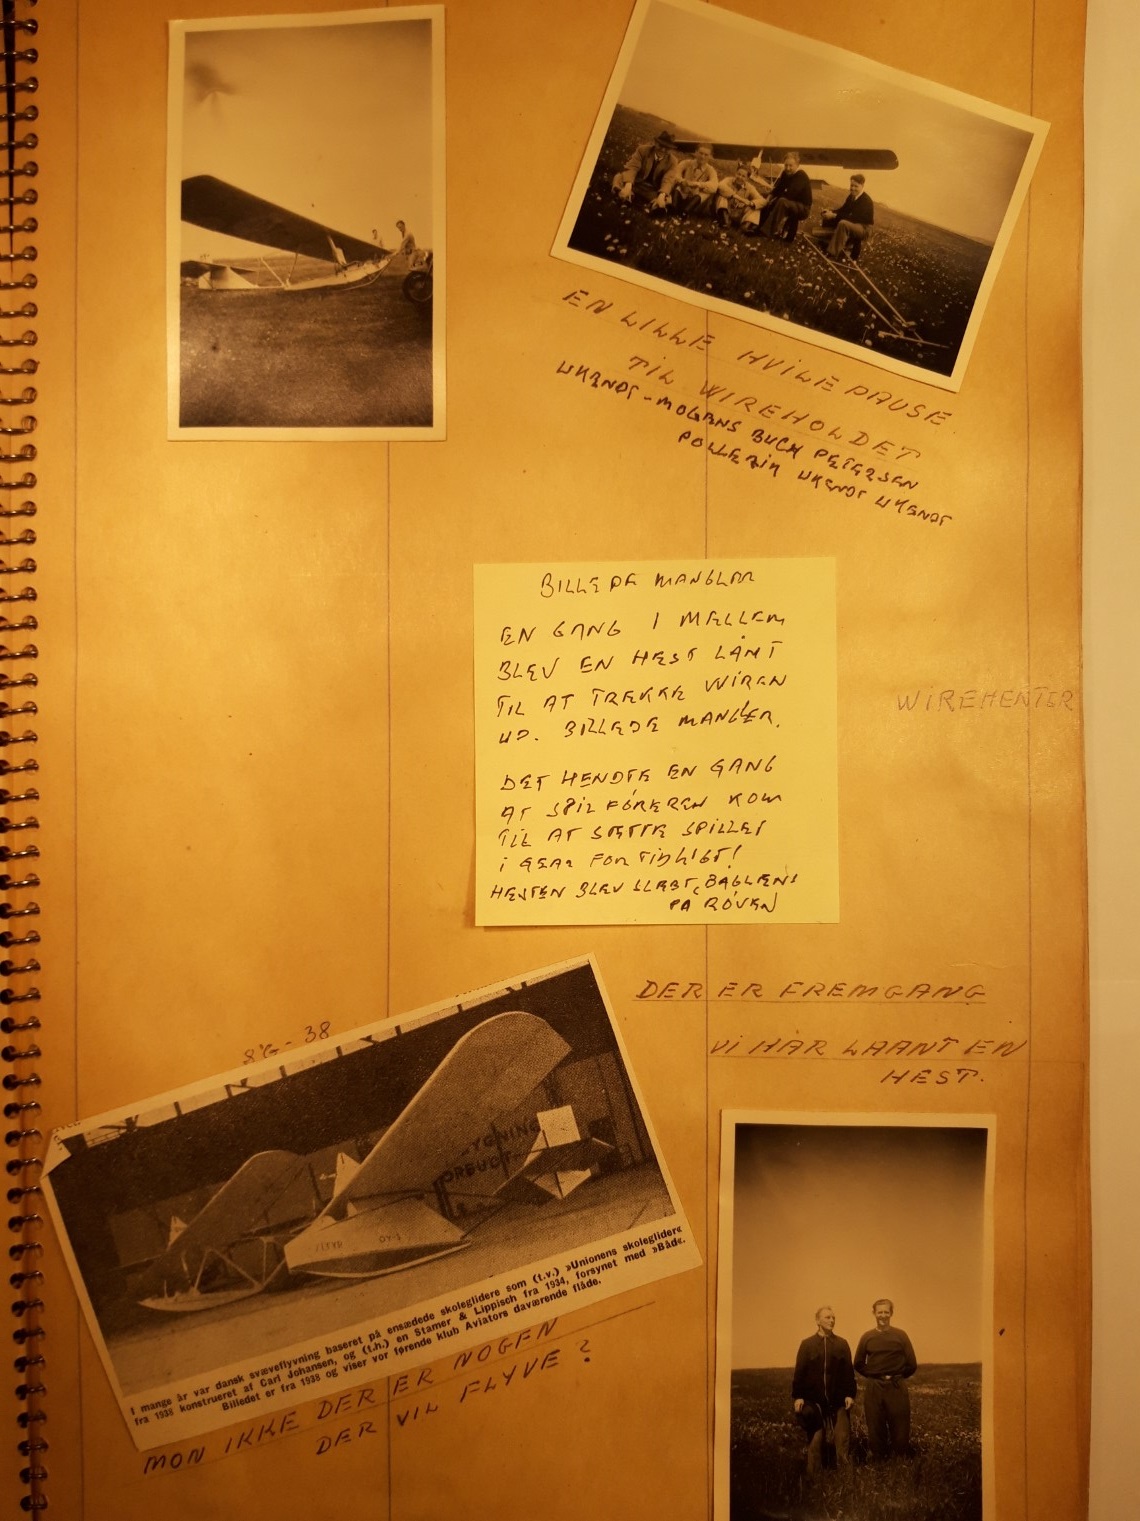 EN LILLE HVILEPAUSE
TIL WIREHOLDET
UKENDT - MOGENS BUCH PETERSEN
POLLERIK UKENDT UKENDT
BILLEDE MANGLER
EN GANG I MELLEM
BLEV EN HEST LÅNT
TIL AT TREKKE WIREN
UD. BILLEDE MANGLER.
DET HENDTE EN GANG
AT SPIL FØREREN KOM
TIL AT SÆTTE SPILLET
I GEAR FOR TIDLIGT!
HESTEN BLEV SLEBT, BAGLENS
PÅ RØVEN
WIREHENTER
DER ER FREMGANG
VI HAR LAANT EN
HEST.
SG-38
YGNING
ORBUDT
OY-
I mange år var dansk svæveflyvning baseret på ensædede skoleglidere som (t.v.) »Unionens skoleglider«
fra 1938 konstrueret af Carl Johansen, og (t.h.) en Stamer & Lippisch fra 1934, forsynet med »Båd«.
Billedet er fra 1938 og viser vor førende klub Aviators daværende flåde.
MON IKKE DER ER NOGEN
DER VIL FLYVE?